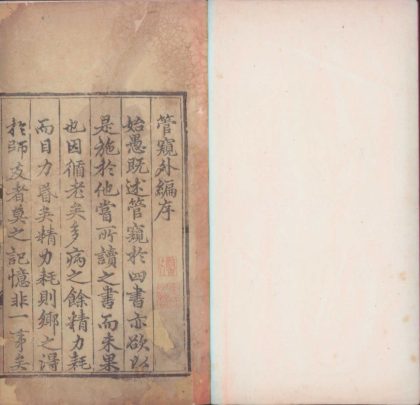 管窺外編序
始愚既述管窺於四書亦欲以
是施於他當所讀之書而未果
也因循老矣多病之餘精力耗
而目力昬矣精力耗則鄉之得
於師友者莫之記憶非一第矣